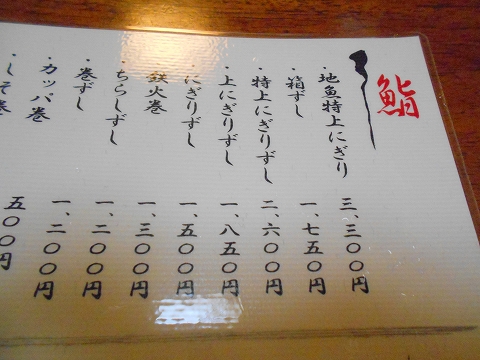 鮨
・地魚特上にぎり 三、三〇〇円
・箱ずし 一、七五〇円
特上にぎりずし 二、六〇〇円
・上にぎりずし 一、八五〇円
・にぎりずし 一、五〇〇円
鉄火巻 一、三〇〇円
・ちらしずし 一、二〇〇円
・巻ずし 一、二〇〇円
・カッパ巻 五〇〇円
・しそ巻